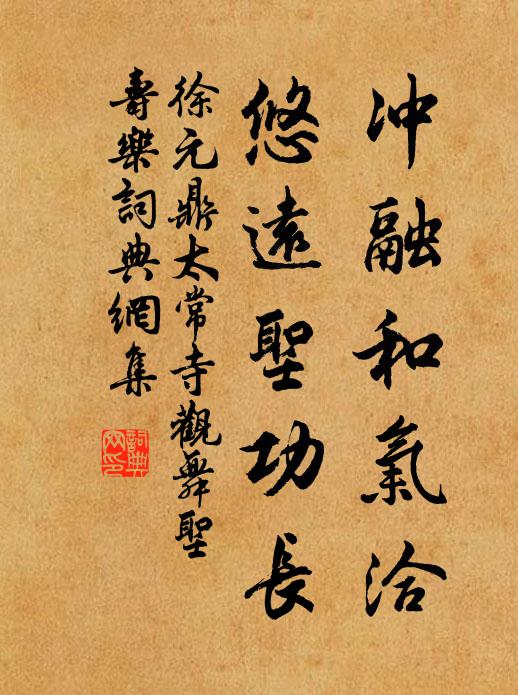 冲融和氣洽
悠遠聖功長
徐元鼎太常寺觀舞聖
壽樂詞典網集
詞典網印